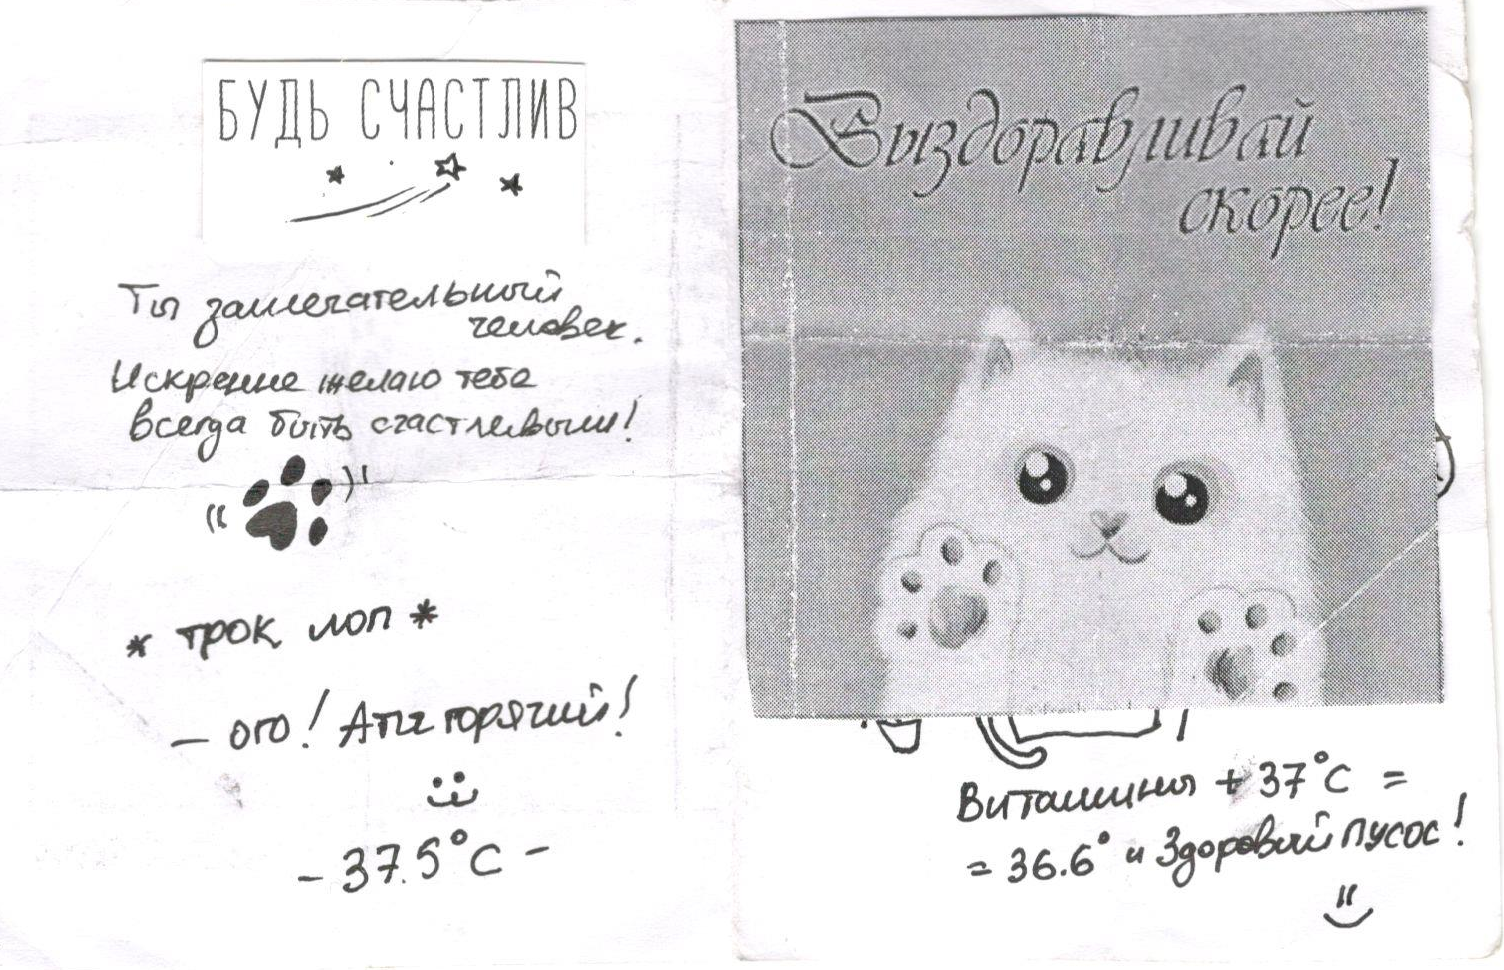 БУДЬ СЧАСТЛИВ
Ты замечательный
человек.
Искренне желаю тебе
всегда быть счастливым!
* трок лоп *
- ого! Апч горячий!
- 37.5°C -
Выздоравливай
скорее!
Витамины + 37°C =
= 36.6° и Здоровый пусос!